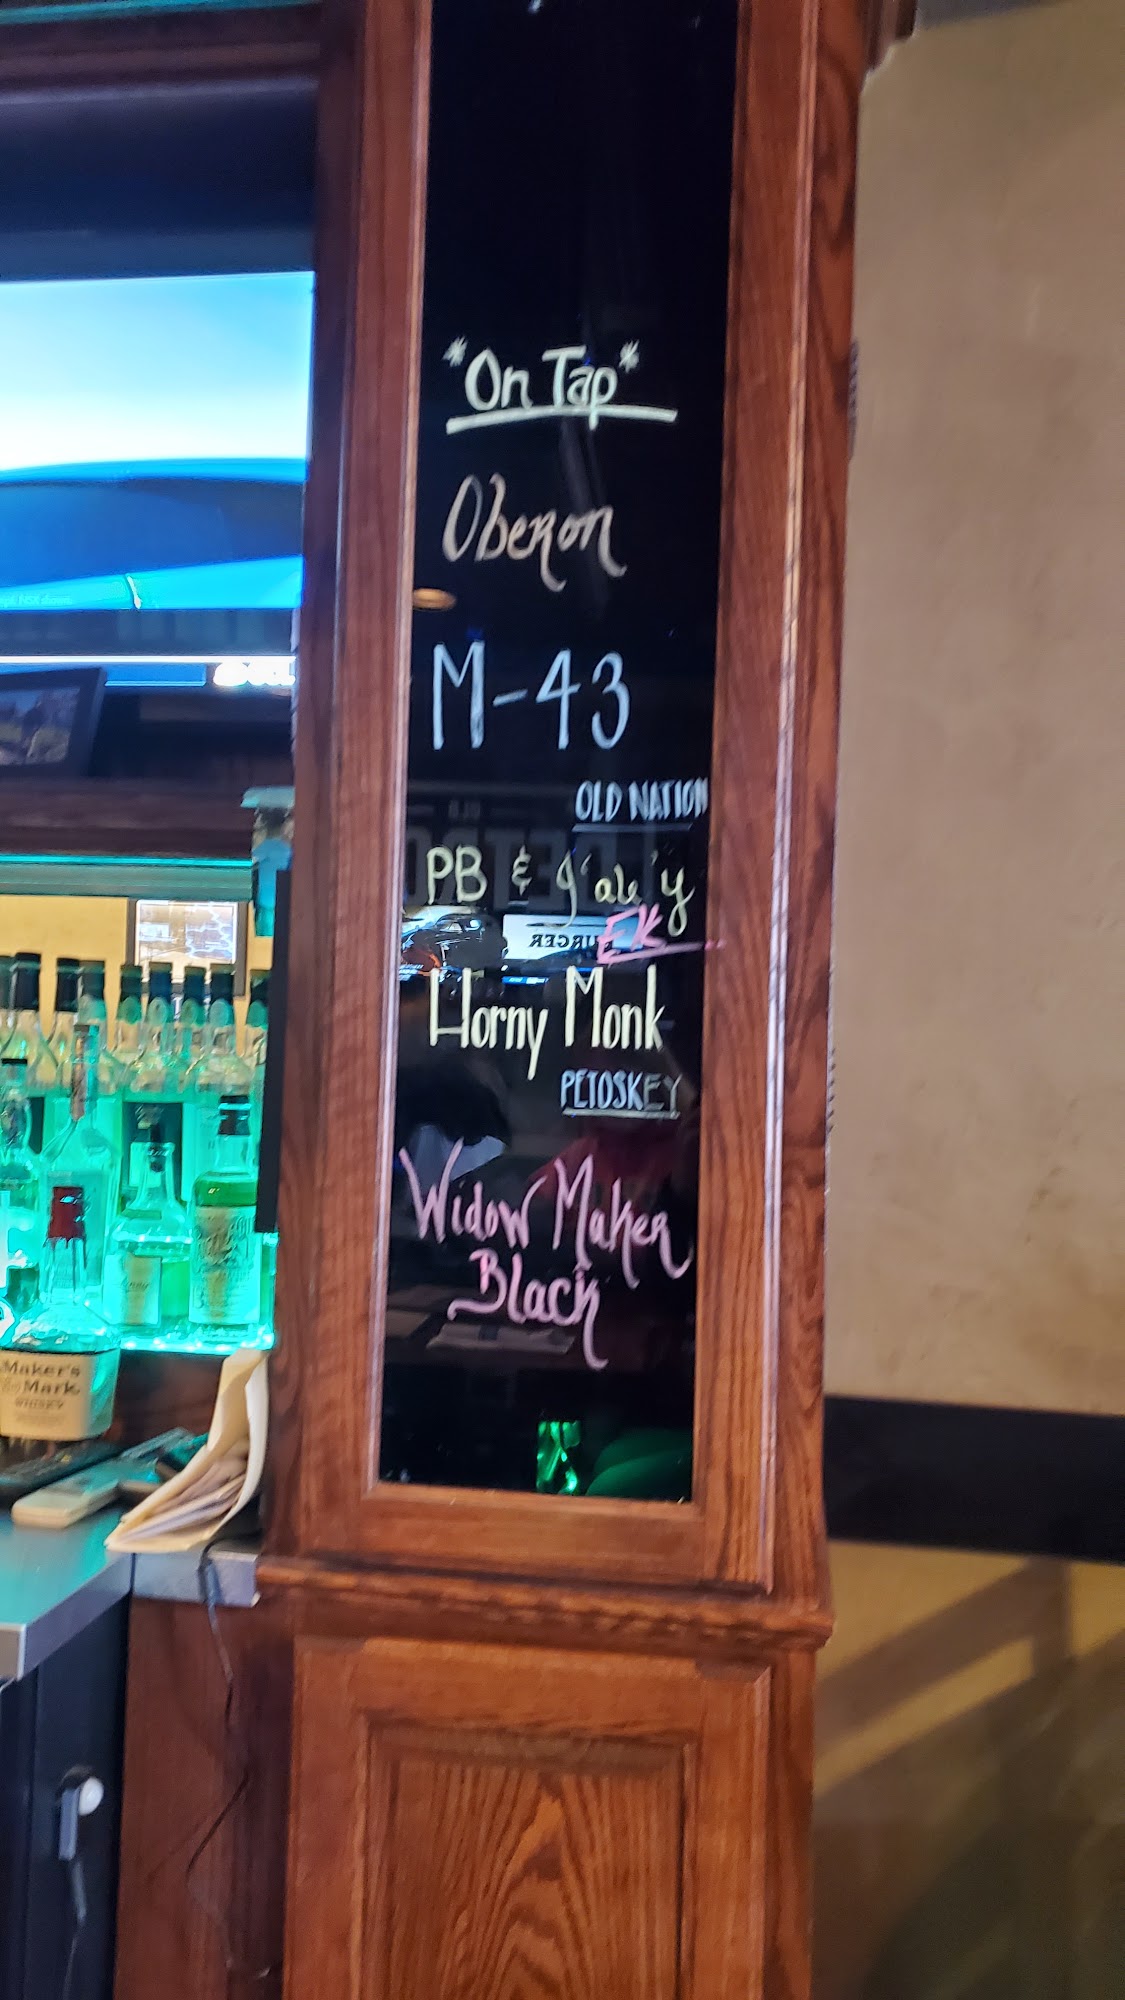 *On Tap*
Oberon
M-43
OLD NATION
PB & J'ale'y
EK
BURGER
Horny Monk
PETOSKEY
Widow Maker
Black
Maker's
Mark
WHISKY